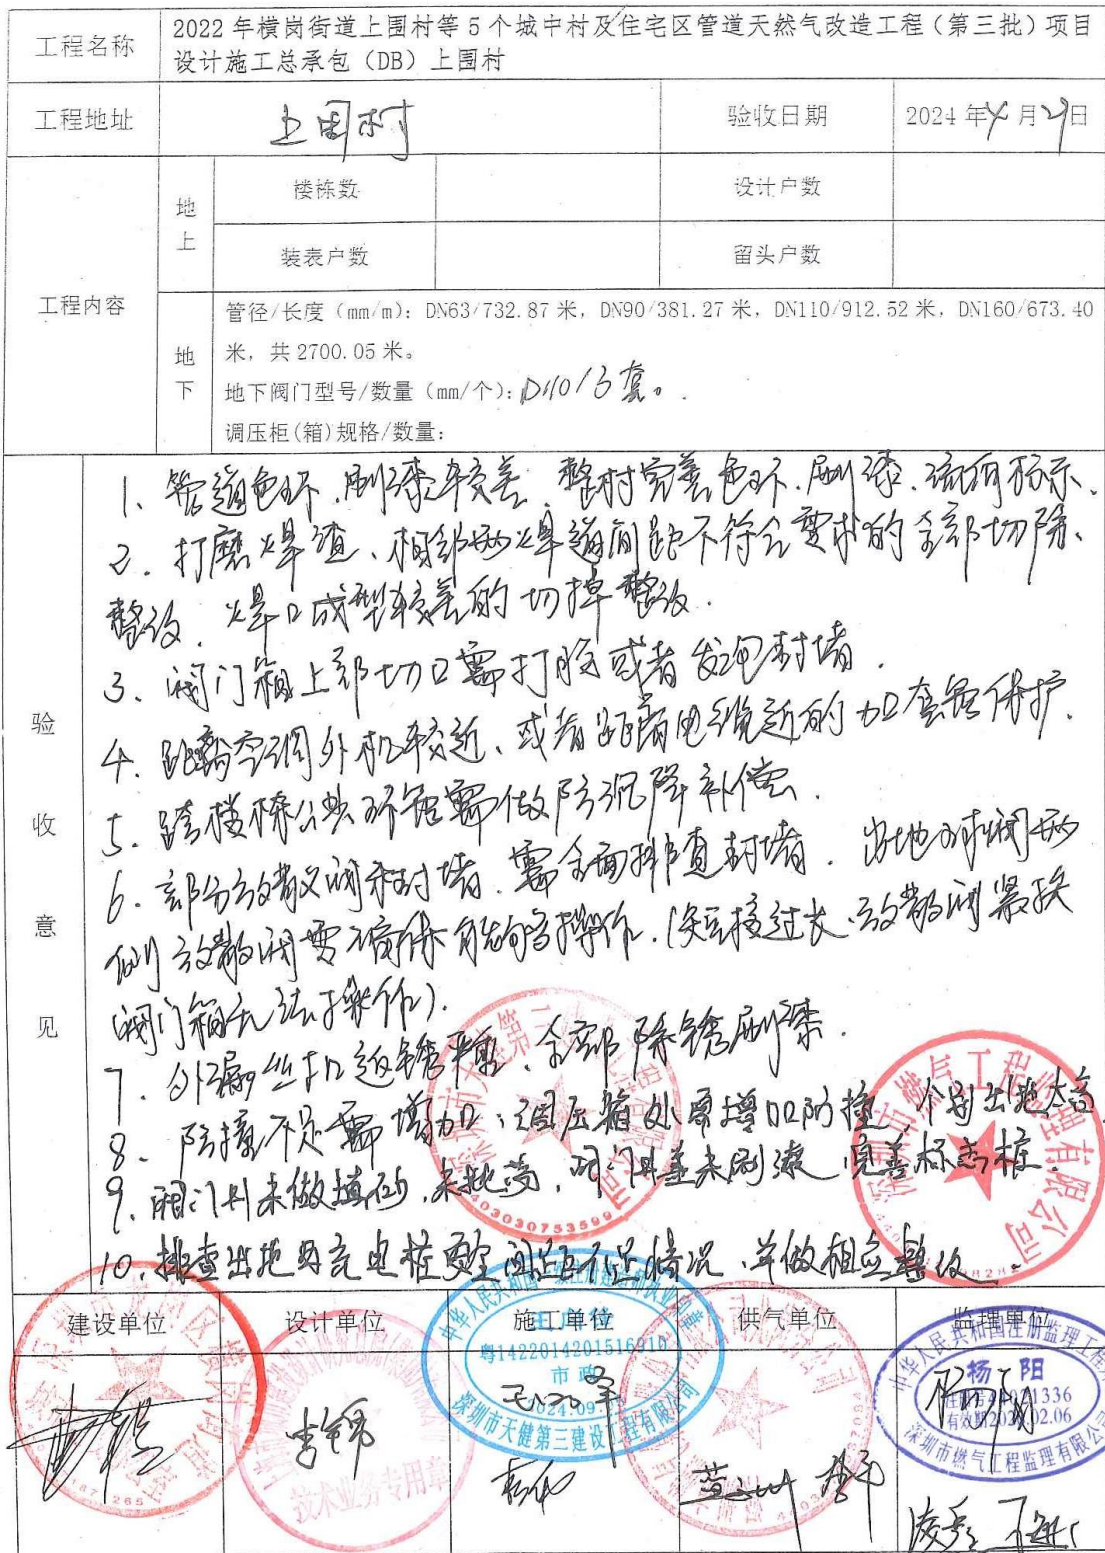 工程名称
2022 年横岗街道上围村等 5 个城中村及住宅区管道天然气改造工程（第三批）项目
设计施工总承包（DB）上围村
工程地址 上围村 验收日期 2024 年4月29日
工程内容
地上
楼栋数 设计户数
装表户数 留头户数
地下
管径/长度（mm/m）：DN63/732.87 米，DN90/381.27 米，DN110/912.52 米，DN160/673.40
米，共 2700.05 米。
地下阀门型号/数量（mm/个）：D110/3套。
调压柜(箱)规格/数量：
验收意见
1、管道色环、刷漆较差、整村完善色环、刷漆、流向标示、
2、打磨焊渣、相邻两焊道间距不符合要求的全部切除、
整改、焊口成型较差的切掉整改.
3、阀门箱上部切口需打胶或者发泡封堵.
4、距离空调外机较近、或者距离电缆近的加套管保护.
5、跨楼栋公共环管需做防沉降补偿.
6、部分放散阀未封堵.需全面排查封堵. 出地球阀两
侧放散阀要确保能够操作.(短接过长、放散阀紧挨
阀门箱无法操作).
7、外漏丝扣返锈严重、全部除锈刷漆.
8、防撞不足需增加、调压箱处需增加防撞、个别出地太高
9、阀门井未做填砂、未抛荡、阀门井盖未刷漆、完善标志桩.
10、排查出地与充电桩安全间距不足情况、并做相应整改.
建设单位 设计单位 施工单位 供气单位 监理单位
中华人民共和国注册监理工程师
杨阳
深圳市燃气工程监理有限公司
粤1422014201516910
市政
深圳市天健第三建设工程有限公司
技术业务专用章
深圳市燃气工程监理有限公司